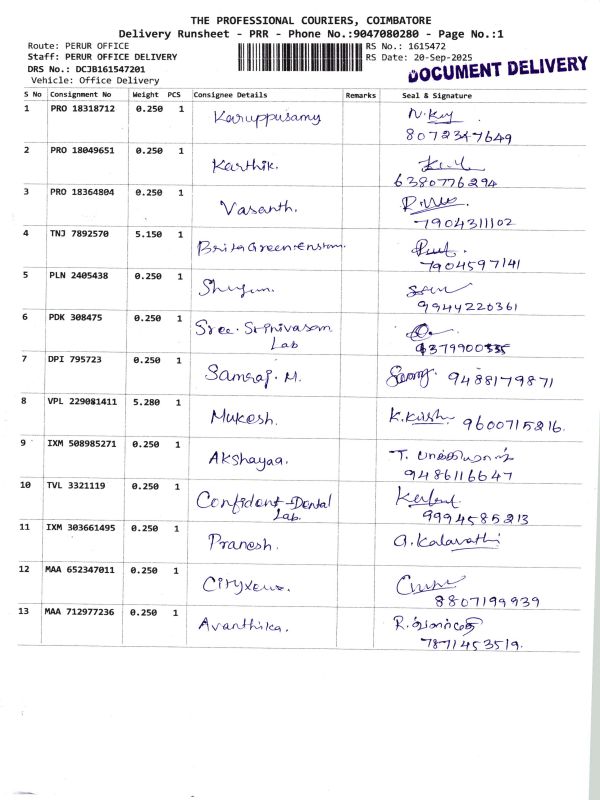 THE PROFESSIONAL COURIERS, COIMBATORE
Delivery Runsheet - PRR - Phone No.:9047080280 - Page No.:1
Route: PERUR OFFICE RS No.: 1615472
Staff: PERUR OFFICE DELIVERY RS Date: 20-Sep-2025
DRS No.: DCJB161547201 DOCUMENT DELIVERY
Vehicle: Office Delivery
S No Consignment No Weight PCS Consignee Details Remarks Seal & Signature
1 PRO 18318712 0.250 1 Karuppusamy
8072347649
2 PRO 18049651 0.250 1 Karthik.
6380776294
3 PRO 18364804 0.250 1 Vasanth.
7904311102
4 TNJ 7892570 5.150 1
7904597141
5 PLN 2405438 0.250 1
9944220361
6 PDK 308475 0.250 1 Sree. Srinivasam
Lab
7 DPI 795723 0.250 1 Samraj. M. 9488179871
8 VPL 229081411 5.280 1 Mukesh. 9600715216.
9 IXM 508985271 0.250 1 Akshayaa.
9486116647
10 TVL 3321119 0.250 1 Confident Dental
Lab.
9994585213
11 IXM 303661495 0.250 1 Pranesh. G. Kalavathi
12 MAA 652347011 0.250 1
8807199939
13 MAA 712977236 0.250 1 Avanthika.
7871453519.